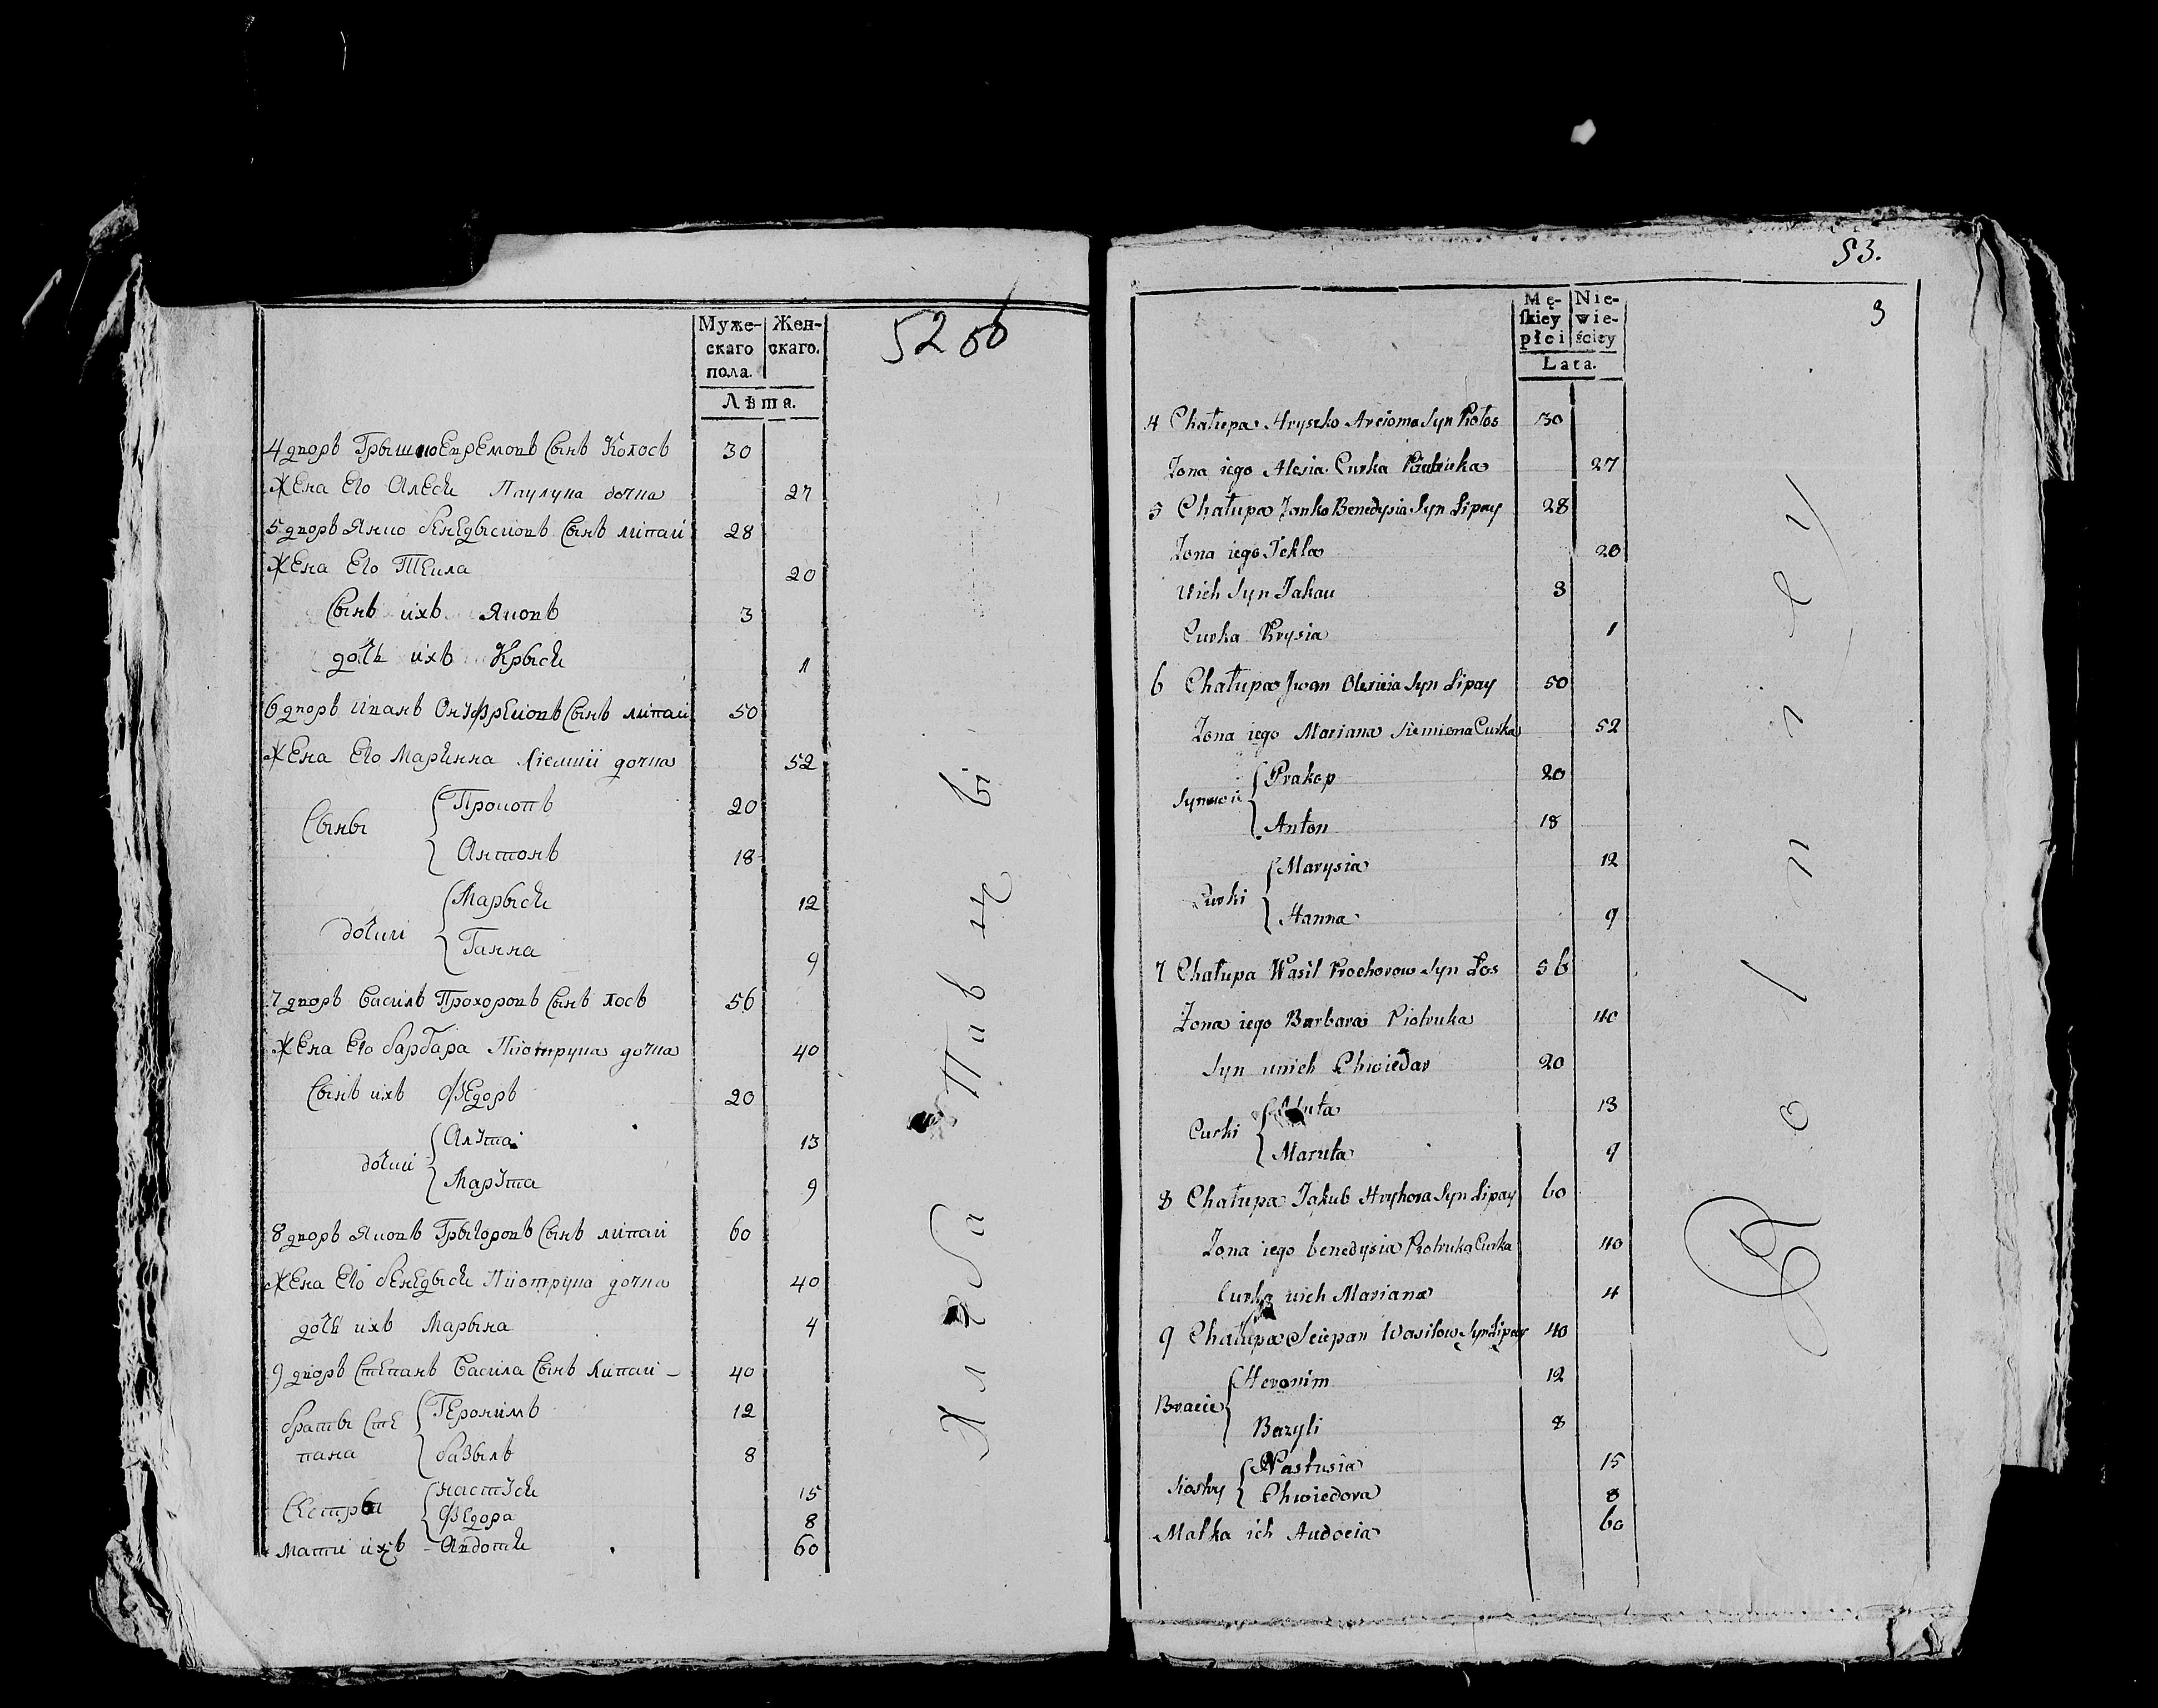 Муже-
скаго
пола.
Жен-
скаго.
Лѣта.
52 об
4 дворъ Грышко Ефремовъ Сынъ Колосъ 30
Жена Его Алеся Паулука дочка 27
5 дворъ Янко бенедысювъ Сынъ липай 28
Жена Его Текла 20
Сынъ ихъ Яковъ 3
дочь ихъ Крыся 1
6 дворъ Иванъ Онуфреювъ Сынъ липай 50
Жена Его Маринна дочка 52
Сыны
Прокопъ 20
Антонъ 18
дочки
Марыся 12
Ганна 9
7 дворъ Василь Прохоровъ Сынъ лосъ 56
Жена Его барбара Пиотрука дочка 40
Сынъ ихъ Фэдоръ 20
дочки
Алута 13
Марута 9
8 дворъ Яковъ Грыгоровъ Сынъ липай 60
Жена Его бенедыся Пиотрука дочка 40
дочь ихъ Марына 4
9 дворъ Степанъ Васила Сынъ Липай 40
браты Сте
пана
Геронимъ 12
базыль 8
Сестры
настуся 15
Фэдора 8
мати ихъ Авдотя 60
Хлѣбапашцъ
53.
3
Mę-
skiey
płci
Nie-
wie-
ściey
Lata.
4 Chałupa Hryszko Arcioma Syn Kołos 30
Zona iego Alesia Curka 27
5 Chałupa Janko Benedysia Syn Lipay 28
Zona iego Tekla 20
Uich Syn Jakau 3
Curka Krysia 1
6 Chałupa Jwan Syn Lipay 50
Zona iego Mariana Siemiona Curka 52
Synowie
Prakop 20
Anton 18
Curki
Marysia 12
Hanna 9
7 Chałupa Wasil Prochorow Syn Łos 56
Zona iego Barbara Piotruka 40
Syn unich Chwiedar 20
Curki
Aluta 13
Maruta 9
8 Chałupa Jakub Hryhora Syn Lipay 60
Zona iego benedysia Piotruka Curka 40
Curka uich Mariana 4
9 Chałupa Sciepan Wasilow Syn Lipay 40
Bracie
Heronim 12
Bazyli 8
Siostry
Nastusia 15
Chwiedora 8
Matka ich Audocia 60
Rolniki